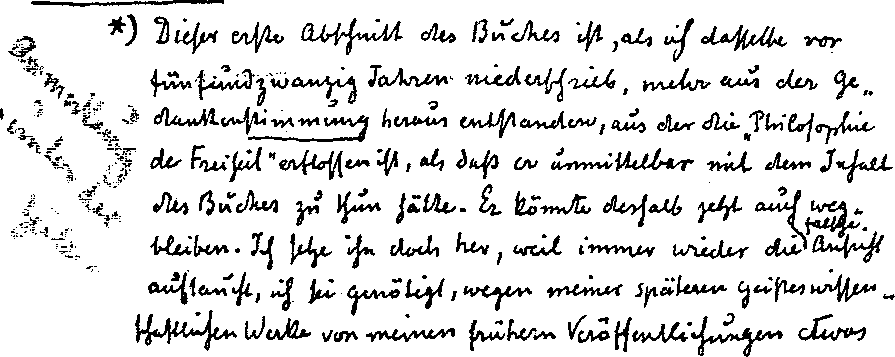 *) Dieser erste Abschnitt des Buches ist, als ich dasselbe vor
fünfundzwanzig Jahren niederschrieb, mehr aus der Ge„
dankenstimmung heraus entstanden, aus der die „Philosophie
der Freiheit" erflossen ist, als daß er unmittelbar mit dem Inhalt
des Buches zu thun hätte. Er könnte deshalb jetzt auch weg„
bleiben. Ich setze ihn doch her, weil immer wieder die Ansicht
auftaucht, ich sei genötigt, wegen meiner späteren geisteswissen„
schaftlichen Werke von meinen frühern Veröffentlichungen etwas